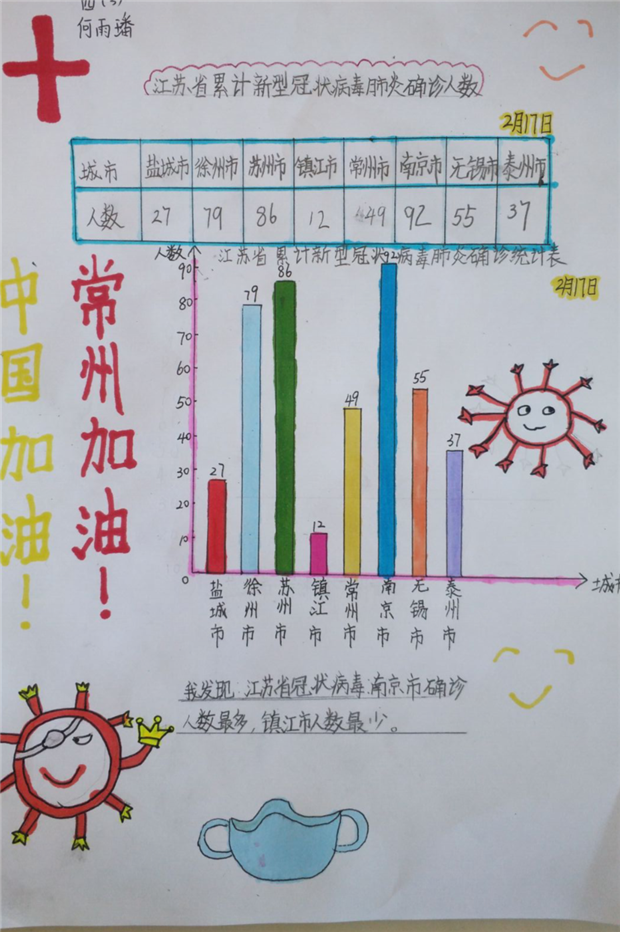 四(3)
何雨璠
江苏省累计新型冠状病毒肺炎确诊人数
2月17日
城市 盐城市 徐州市 苏州市 镇江市 常州市 南京市 无锡市 泰州市
人数 27 79 86 12 49 92 55 37
人数
江苏省累计新型冠状病毒肺炎确诊统计表
2月17日
90
80
70
60
50
40
30
20
10
0
27
79
86
12
49
92
55
37
盐城市
徐州市
苏州市
镇江市
常州市
南京市
无锡市
泰州市
城市
常州加油!
中国加油!
我发现:江苏省冠状病毒南京市确诊
人数最多,镇江市人数最少。